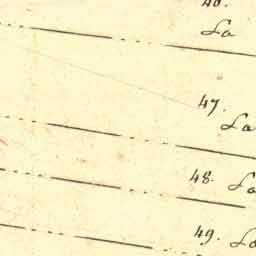 La
47.
La
48. La
49. La